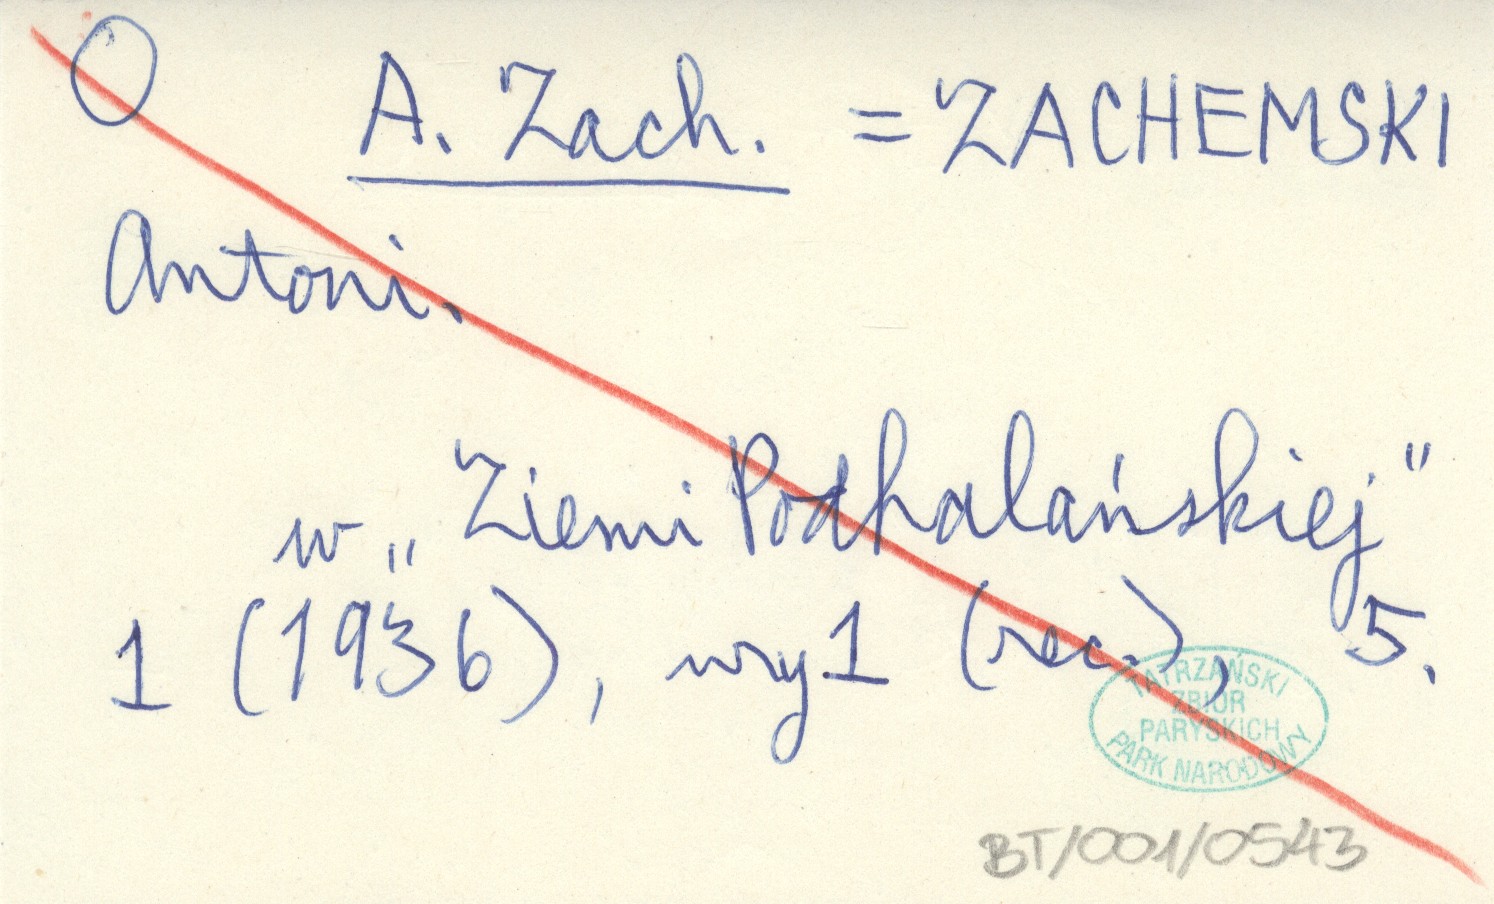 O A. Zach. = ZACHEMSKI
Antoni.
w „Ziemi Podhalańskiej"
1 (1936), nry 1 (rec.), 5.
TATRZAŃSKI
ZBIÓR
PARYSKICH
PARK NARODOWY
BT/001/0543